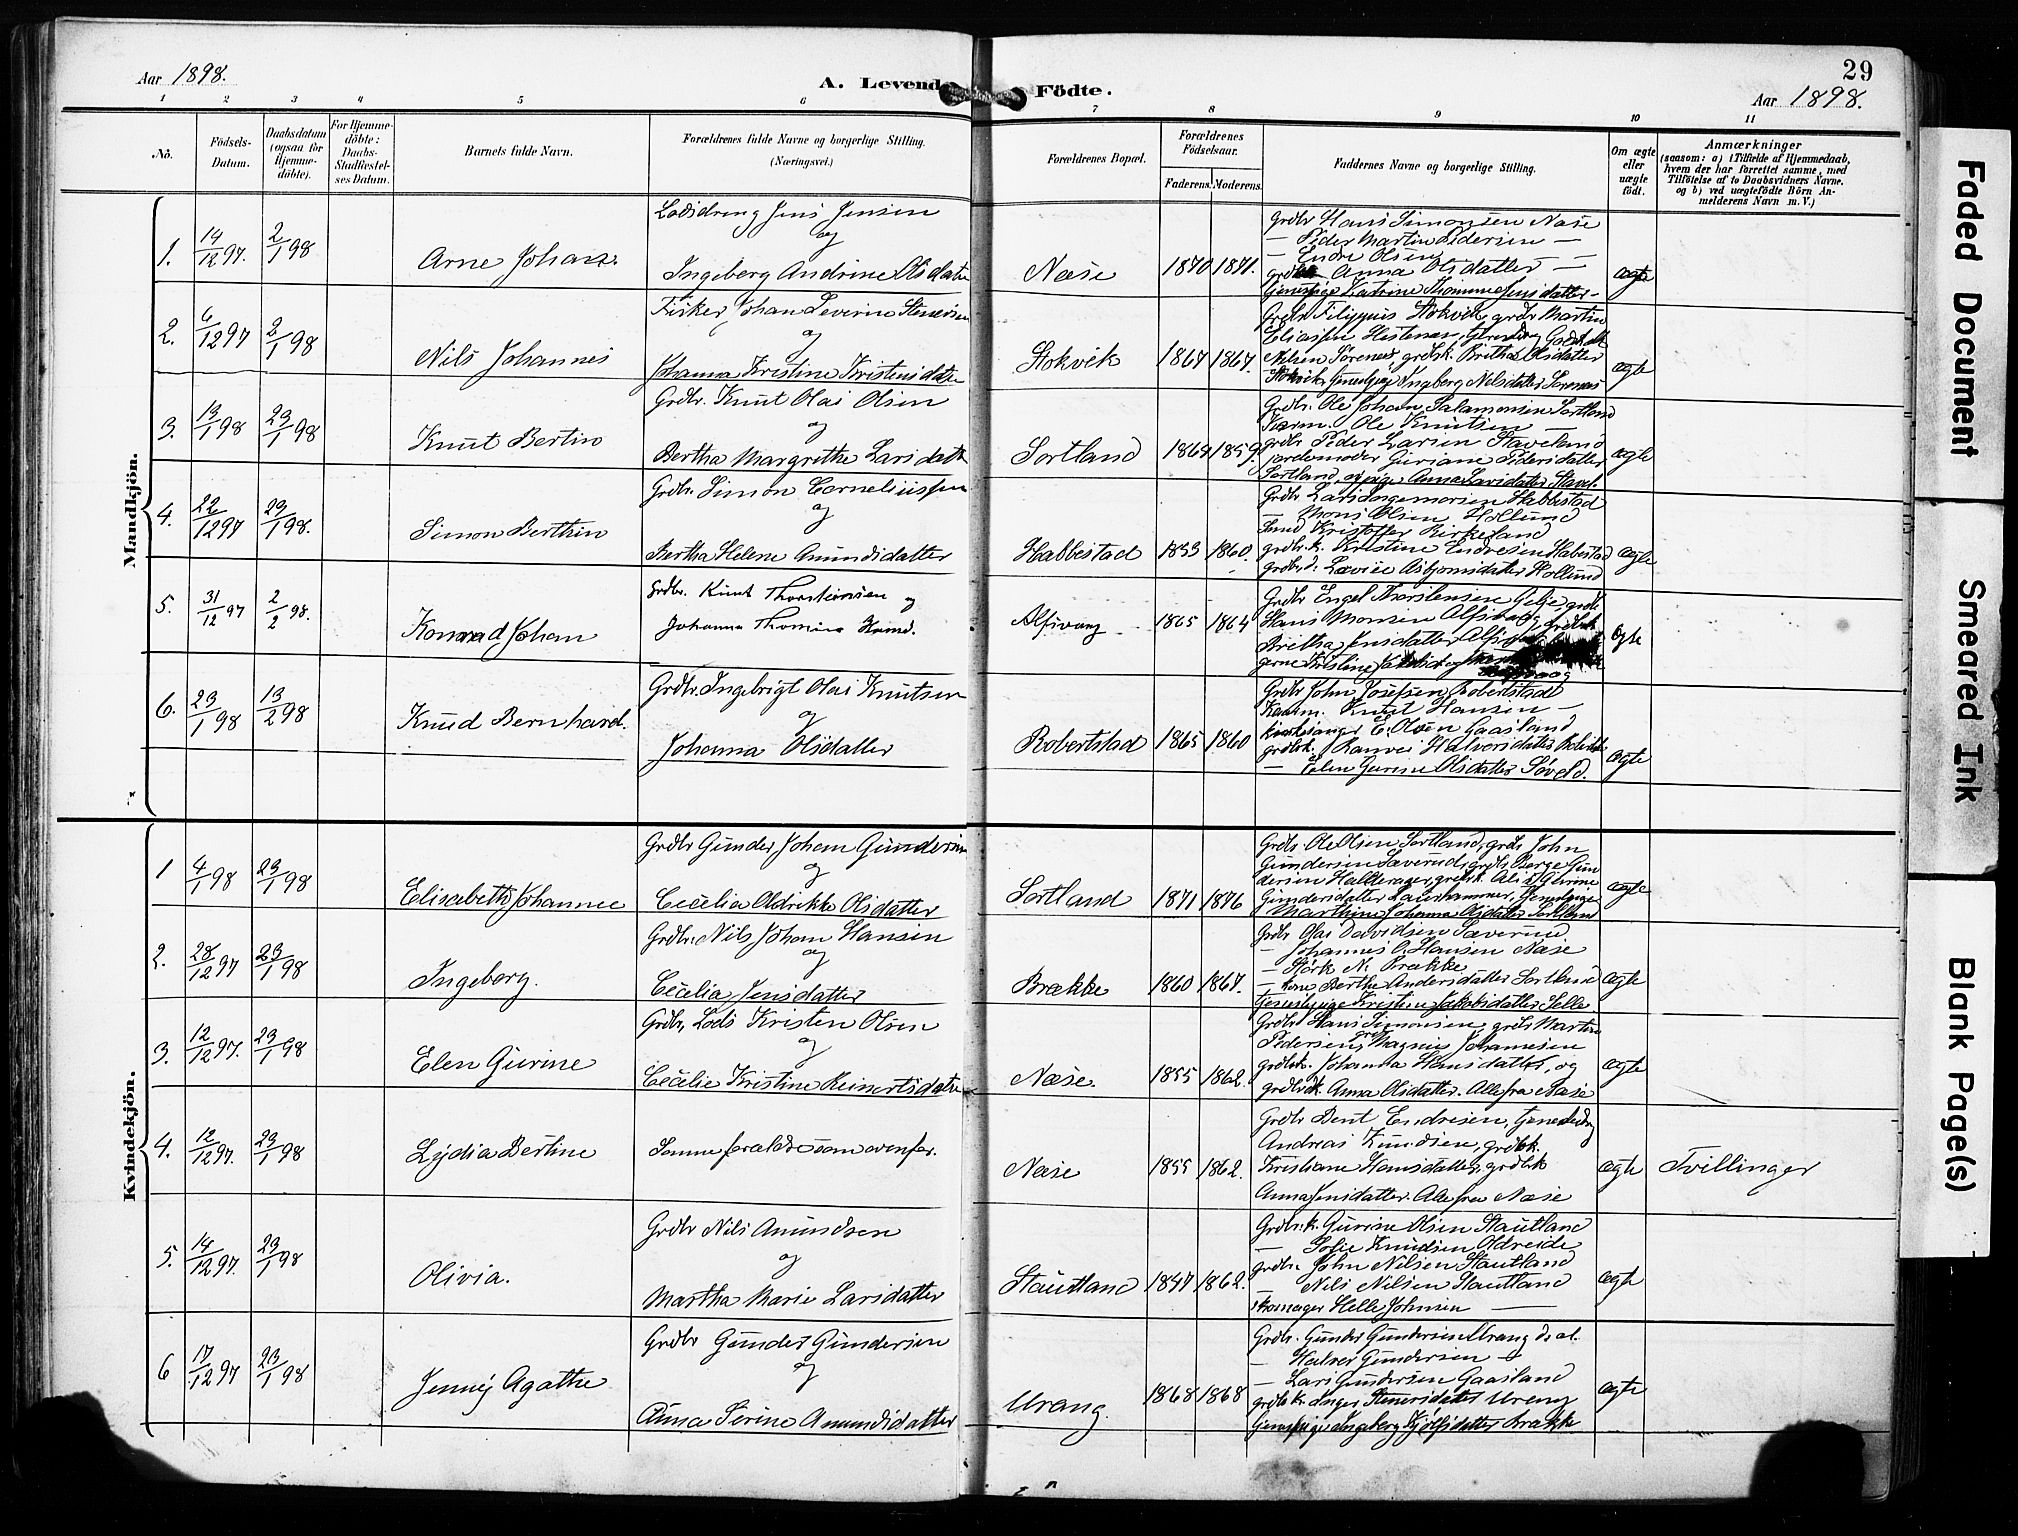 Aar 1898.
A. Levend
Födte.
29
Aar 1898.
1 2 3 4 5 6 7 8 9 10 11
No.
Födsels-Datum.
Daabsdatum (ogsaa for Hjemme-döbte).
For Hjemme-döbte: Daabs-Stadfæstel-ses Datum.
Barnets fulde Navn.
Forældrenes fulde Navne og borgerlige Stilling. (Næringsvei.)
Forældrenes Bopæl.
Forældrenes Födselsaar.
Faderens. Moderens.
Faddernes Navne og borgerlige Stilling.
Om ægte eller uægte födt.
Anmærkninger
(saasom: a) i Tilfælde af Hjemmedaab, hvem der har forrettet samme, med Tilföielse af to Daabsvidners Navne. og b) ved uægtefödte Börn An-melderens Navn m. V.)
Mandkjön.
1. 14/12 97. 2/1 98 Arne Johan
Lodsdreng Jens Jensen
og
Ingeberg Andrine Olsdatr
Næse 1870 1871.
Grdbr Hans Simonsen Næse
— Peder Martin Pedersen —
— Endre Olsen —
Anna Olsdatter —
ægte
2. 6/12 97 2/1 98 Nils Johannes
Fisker Johan Severin Stenersen
og
Johanna Kristine Kristensdatr
Stokvik 1867 1867.
Grdbr Filippus Stokvik, grdbr Martin
ægte
3. 13/1 98 23/1 98 Knut Bertin
Grdbr. Knut Olai Olsen
og
Bertha Margrethe Larsdatr
Sortland 1862 1859.
Grdbr. Ole Johan Salamonsen Sortland
Ole Knutsen —
grdbr Peder Larsen Staveland
jordemoder Guriane Pedersdatter
ægte
4. 22/12 97 23/1 98. Simon Berthin
Grdbr. Simon Corneliussen
og
Bertha Helene Amundsdatter
Habbestad 1853 1860.
Grdbr Lars Ingemorsen Habbestad
— Mons Olsen Hollund
Kristoffer Birkeland
grdbr.k. Kristine Endresen Habestad
grdbr.d. Lavise Asbjornsdatter Hollund
ægte
5. 31/12 97 2/2 98. Konrad Johan
Grdbr. Knut Thorsteinsen og
Johanna Thomine Hansd.
Alfsvaag 1865 1864
Grdbr Engel Thorstensen
Hans Monsen Alfsvaag, grdbrk
Bretha Jensdatter
ægte
6. 23/1 98 13/2 98 Knud Bernhard.
Grdbr. Ingebrigt Olai Knutsen
og
Johanna Olsdatter
Robertstad 1865 1860
Grdbr John Josefsen Robertstad
Knut Hansen —
kirkesanger E. Olsen Gaasland
grdbrk. Ranvei Halvorsdatter
— Elen Gurine Olsdatter
ægte
Kvindekjön.
1 4/1 98 23/1 98 Elisabeth Johanne
Grdbr Gunder Johan Gundersen
og
Cecelia Oldrikke Olsdatter
Sortland 1871 1876
Grdbr. Ole Olsen Sortland, grdb John
Gundersen Sæverud, grdb Børge Gun
dersen
Marthine Johanna Olsdatter Sortland
ægte
2. 28/12 97 23/1 98 Ingeborg.
Grdbr. Nils Johan Hansen
og
Cecelia Jensdatter
Brække 1860 1867.
Grdbr Olai Davidsen Sæverud
— Johannes O. Hansen Næse
— Størk N. Brække
— kone Berthe Andersdatter Sortland
ægte
3. 12/12 97. 23/1 98 Elen Gurine
Grdbr, Lods Kristen Olsen
og
Cecelie Kristine Reinertsdatr
Næse. 1855 1862.
Grdbr Hans Simonsen, grdb Martin
Pedersen, Magnus Johannesen
grdbrk. Johanna Hansdatter, og
grdbrk. Anna Olsdatter. Alle fra Næse
ægte
4. 12/12 97. 23/1 98 Lydia Bertine
Samme forældre som ovenfor.
Næse 1855 1862.
Grdbr Bent Endresen, tjenestedrg
Andreas Knudsen, grdbk.
Kristiane Hansdatter, grdbk
Anna Jensdatter. Alle fra Næse
ægte
Tvillinger
5. 14/12 97. 23/1 98 Olivia.
Grdbr Nils Amundsen
og
Martha Marie Larsdatter
Stautland 1847 1862.
Grdbr.k. Gurine Olsen Stautland
— Sofie Knudsen Oldreide
grdbr. John Nilsen Stautland
— Nils Nilsen Stautland
skomager Helle Johnsen —
ægte
6 17/12 97 23/1 98 Jenny Agathe
Grdbr Gunder Gundersen
og
Anna Serine Amundsdatter
Urang 1868 1868
Grdbr. Gunder Gundersen Urang
— Halvor Gundersen —
— Lars Gundersen Gaasland
grdbk. Inger Stenersdatter Urang
Tjenestpige Ingeberg Kjølfsdatter Brække
ægte
Faded Document
Smeared Ink
Blank Page(s)